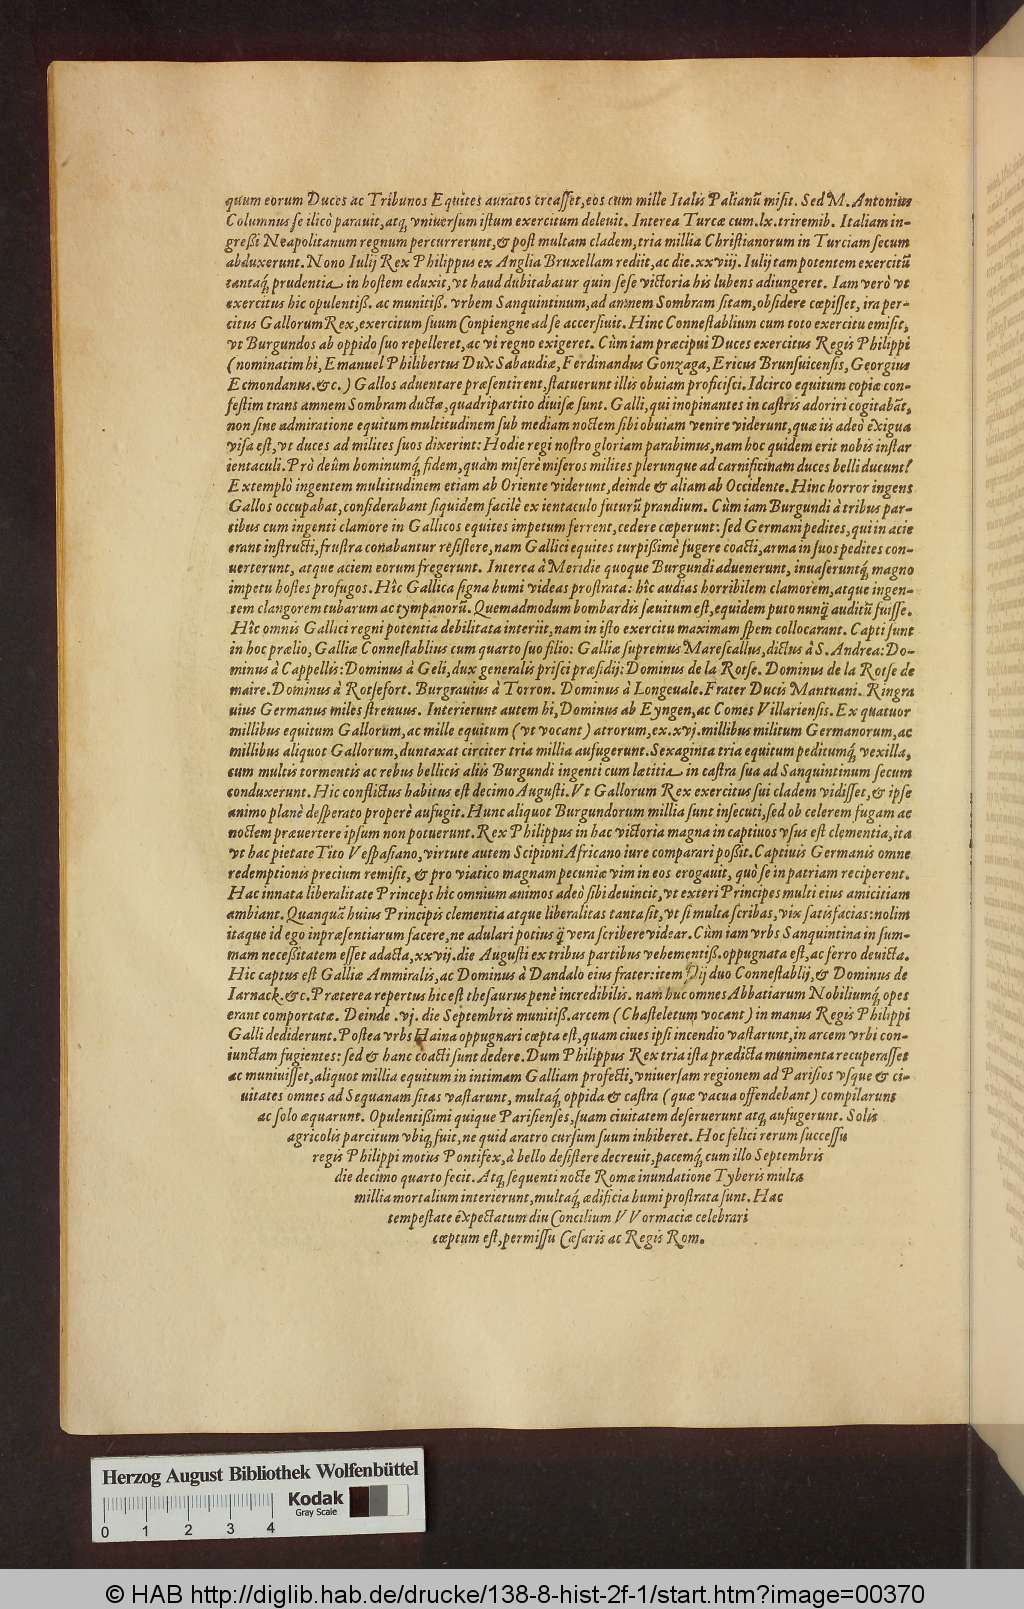 quum eorum Duces ac Tribunos Equites auratos creaſſet, eos cum mille Italis Palianũ miſit. Sed M. Antonius
Columnius ſe ilicò parauit, atq́, vniuerſum iſtum exercitum deleuit. Interea Turcæ cum .lx. triremib. Italiam in-
greßi Neapolitanum regnum percurrerunt, & poſt multam cladem, tria millia Chriſtianorum in Turciam ſecum
abduxerunt. Nono Iulij Rex Philippus ex Anglia Bruxellam rediit, ac die .xxviij. Iulij tam potentem exercitũ
tantaq́; prudentia in hoſtem eduxit, vt haud dubitabatur quin ſeſe victoria his lubens adiungeret. Iam verò vt
exercitus hic opulentiß. ac munitiß. vrbem Sanquintinum, ad amnem Sombram ſitam, obſidere cœpiſſet, ira per-
citus Gallorum Rex, exercitum ſuum Conpiengne ad ſe accerſiuit. Hinc Conneſtablium cum toto exercitu emiſit,
vt Burgundos ab oppido ſuo repelleret, ac vi regno exigeret. Cùm iam præcipui Duces exercitus Regis Philippi
(nominatim hi, Emanuel Philibertus Dux Sabaudiæ, Ferdinandus Gonzaga, Ericus Brunſuicenſis, Georgius
Ecmondanus .&c.) Gallos aduentare præſentirent, ſtatuerunt illis obuiam proficiſci. Idcirco equitum copiæ con-
feſtim trans amnem Sombram ductæ, quadripartito diuiſæ ſunt. Galli, qui inopinantes in caſtris adoriri cogitabãt,
non ſine admiratione equitum multitudinem ſub mediam noctem ſibi obuiam venire viderunt, quæ iis adeò exigua
viſa eſt, vt duces ad milites ſuos dixerint: Hodie regi noſtro gloriam parabimus, nam hoc quidem erit nobis inſtar
ientaculi. Prò deûm hominumq́; fidem, quàm miserè miſeros milites plerunque ad carnificinam duces belli ducunt!
Extemplò ingentem multitudinem etiam ab Oriente viderunt, deinde & aliam ab Occidente. Hinc horror ingens
Gallos occupabat, conſiderabant ſiquidem facilè ex ientaculo futurũ prandium. Cùm iam Burgundi à tribus par-
tibus cum ingenti clamore in Gallicos equites impetum ferrent, cedere cœperunt: ſed Germani pedites, qui in acie
erant inſtructi, fruſtra conabantur reſiſtere, nam Gallici equites turpißimè fugere coacti, arma in ſuos pedites con-
uerterunt, atque aciem eorum fregerunt. Interea à Meridie quoque Burgundi aduenerunt, inuaſeruntq́; magno
impetu hoſtes profugos. Hîc Gallica ſigna humi videas proſtrata: hîc audias horribilem clamorem, atque ingen-
tem clangorem tubarum ac tympanorũ. Quemadmodum bombardis ſæuitum eſt, equidem puto nunq̃ auditũ fuiſſe.
Hîc omnis Gallici regni potentia debilitata interiit, nam in iſto exercitu maximam ſpem collocarant. Capti ſunt
in hoc prælio, Galliæ Conneſtablius cum quarto ſuo filio: Galliæ ſupremus Mareſcallus, dictus à S. Andrea: Do-
minus à Cappellis: Dominus à Geli, dux generalis priſci præſidij: Dominus de la Rotſe. Dominus de la Rotſe de
maire. Dominus à Rotſefort. Burgrauius à Torron. Dominus à Longeuale. Frater Ducis Mantuani. Ringra
uius Germanus miles ſtrenuus. Interierunt autem hi, Dominus ab Eyngen, ac Comes Villarienſis. Ex quatuor
millibus equitum Gallorum, ac mille equitum (vt vocant) atrorum, ex .xvj. millibus militum Germanorum, ac
millibus aliquot Gallorum, duntaxat circiter tria millia aufugerunt. Sexaginta tria equitum peditumq́; vexilla,
cum multis tormentis ac rebus bellicis aliis Burgundi ingenti cum lætitia in caſtra ſua ad Sanquintinum ſecum
conduxerunt. Hic conflictus habitus eſt decimo Auguſti. Vt Gallorum Rex exercitus ſui cladem vidiſſet, & ipſe
animo planè deſperato properè aufugit. Hunc aliquot Burgundorum millia ſunt inſecuti, ſed ob celerem fugam ac
noctem præuertere ipſum non potuerunt. Rex Philippus in hac victoria magna in captiuos vſus eſt clementia, ita
vt hac pietate Tito Veſpaſiano, virtute autem Scipioni Africano iure comparari poßit. Captiuis Germanis omne
redemptionis precium remiſit, & pro viatico magnam pecuniæ vim in eos erogauit, quò ſe in patriam reciperent.
Hac innata liberalitate Princeps hîc omnium animos adeò ſibi deuincit, vt exteri Principes multi eius amicitiam
ambiant. Quanquã huius Principis clementia atque liberalitas tanta ſit, vt ſi multa ſcribas, vix ſatisfacias: nolim
itaque id ego inpræſentiarum facere, ne adulari potius q̃ vera ſcribere videar. Cùm iam vrbs Sanquintina in ſum-
mam neceßitatem eſſet adacta, xxvij. die Auguſti ex tribus partibus vehementiß. oppugnata eſt, ac ferro deuicta.
Hic captus eſt Galliæ Ammiralis, ac Dominus à Dandalo eius frater: item Dij duo Conneſtablij, & Dominus de
Iarnack .&c. Præterea repertus hic eſt theſaurus penè incredibilis. nam huc omnes Abbatiarum Nobiliumq́; opes
erant comportatæ. Deinde .vj. die Septembris munitiß. arcem (Chaſteletum vocant) in manus Regis Philippi
Galli dediderunt. Poſtea vrbs Haina oppugnari cœpta eſt, quam ciues ipſi incendio vaſtarunt, in arcem vrbi con-
iunctam fugientes: ſed & hanc coacti ſunt dedere. Dum Philippus Rex tria iſta prædicta munimenta recuperaſſet
ac muniuiſſet, aliquot millia equitum in intimam Galliam profecti, vniuerſam regionem ad Pariſios vſque & ci-
uitates omnes ad Sequanam ſitas vaſtarunt, multaq́; oppida & caſtra (quæ vacua offendebant) compilarunt
ac ſolo æquarunt. Opulentißimi quique Pariſienſes, ſuam ciuitatem deſeruerunt atq́; aufugerunt. Solis
agricolis parcitum vbiq́; fuit, ne quid aratro curſum ſuum inhiberet. Hoc felici rerum ſucceſſu
regis Philippi motus Pontifex, à bello deſiſtere decreuit, pacemq́; cum illo Septembris
die decimo quarto fecit. Atq́; ſequenti nocte Romæ inundatione Tyberis multa
millia mortalium interierunt, multaq́; ædificia humi proſtrata ſunt. Hac
tempeſtate expectatum diu Concilium VVormaciæ celebrari
cœptum eſt, permiſſu Cæſaris ac Regis Rom.
Herzog August Bibliothek Wolfenbüttel
Kodak
Gray Scale
0 1 2 3 4
© HAB http://diglib.hab.de/drucke/138-8-hist-2f-1/start.htm?image=00370